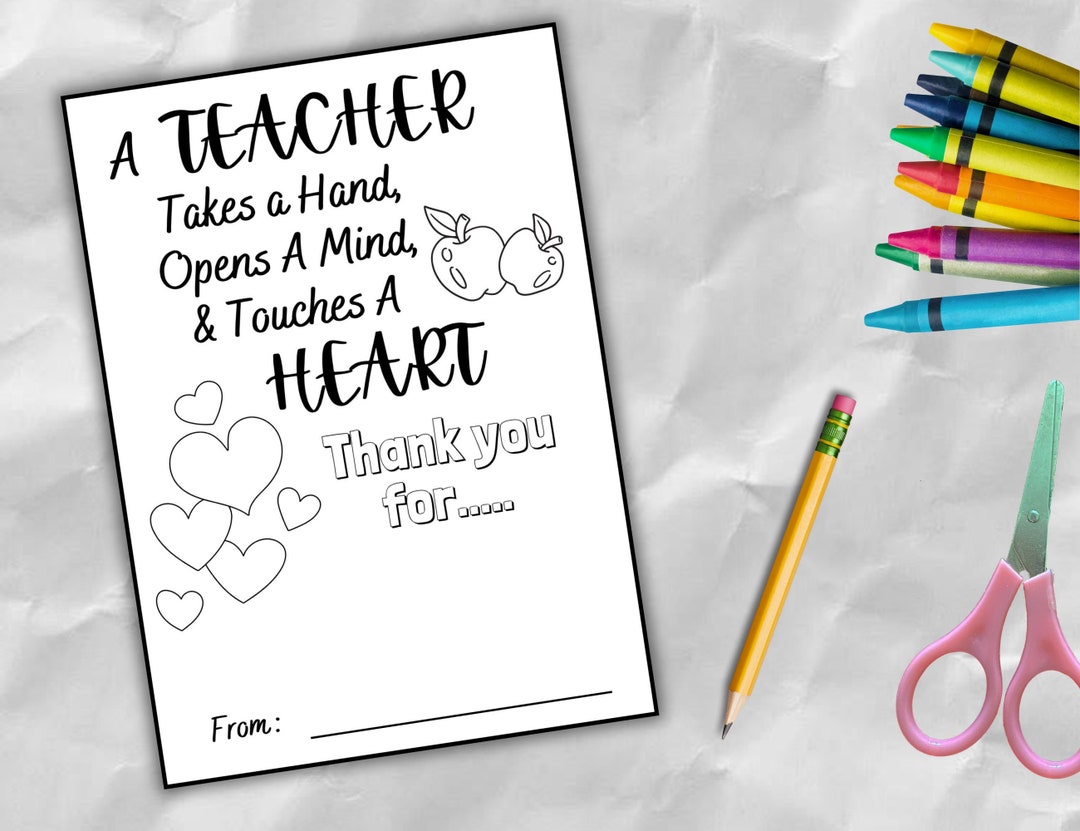 A TEACHER
Takes a Hand,
Opens A Mind,
& Touches A
HEART
Thank you
for.....
From: